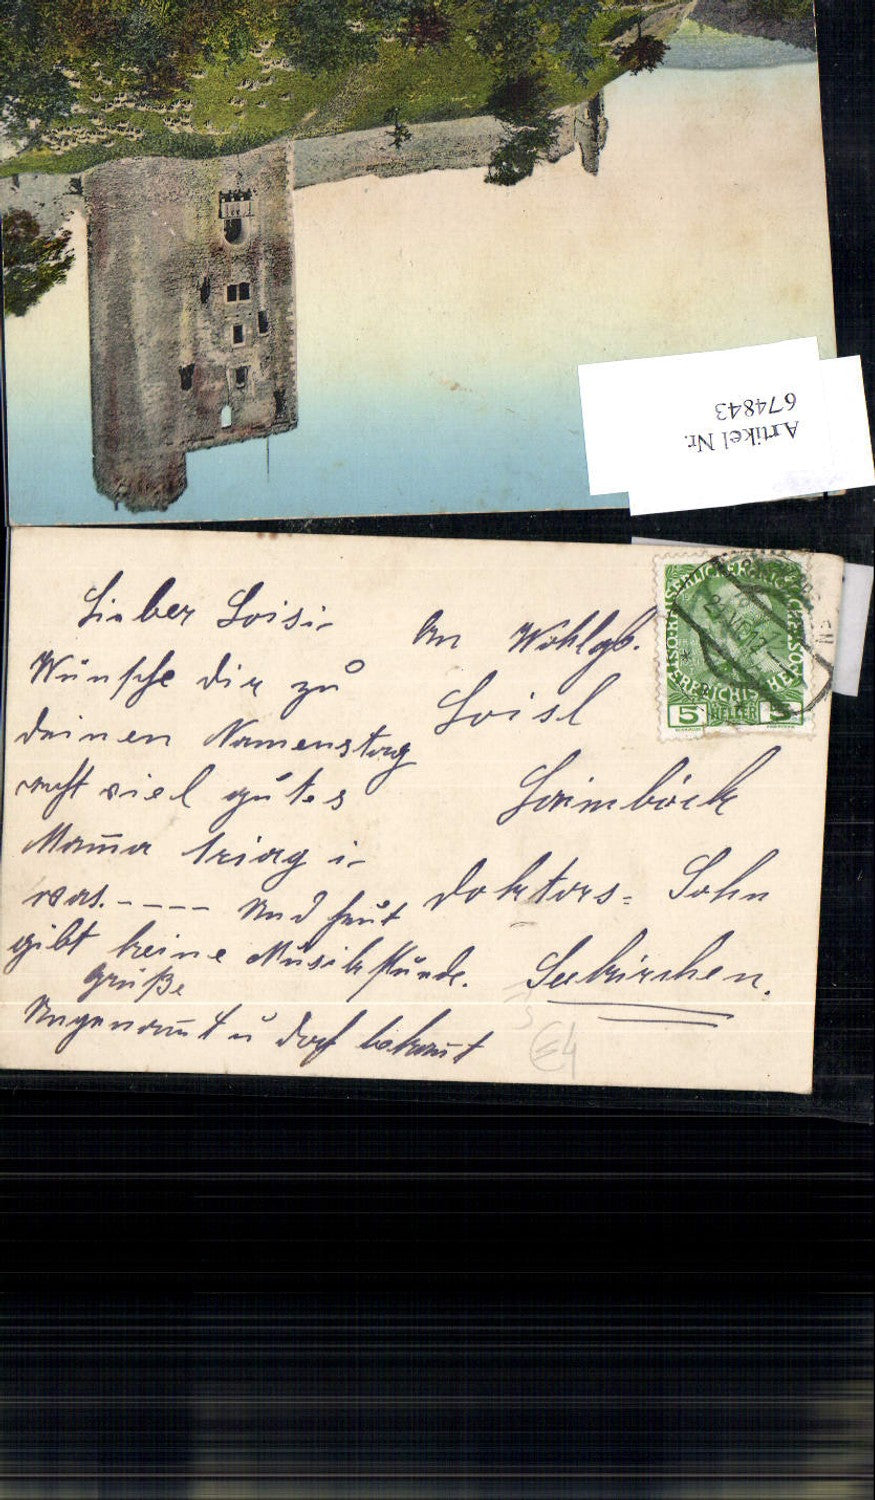 Artikel Nr.
674843
Lieber Loisi
Wünsche dir zu
deinen Namenstag
recht viel gutes
Mama kriag i
was. - - - - Und heut
gibt keine Musikstunde.
Grüße
Ungenannt u doch bekannt
An Wohlgb.
Loisl
Laimböck
Doktors= Sohn
Seekirchen.
5 HELLER 5
E4